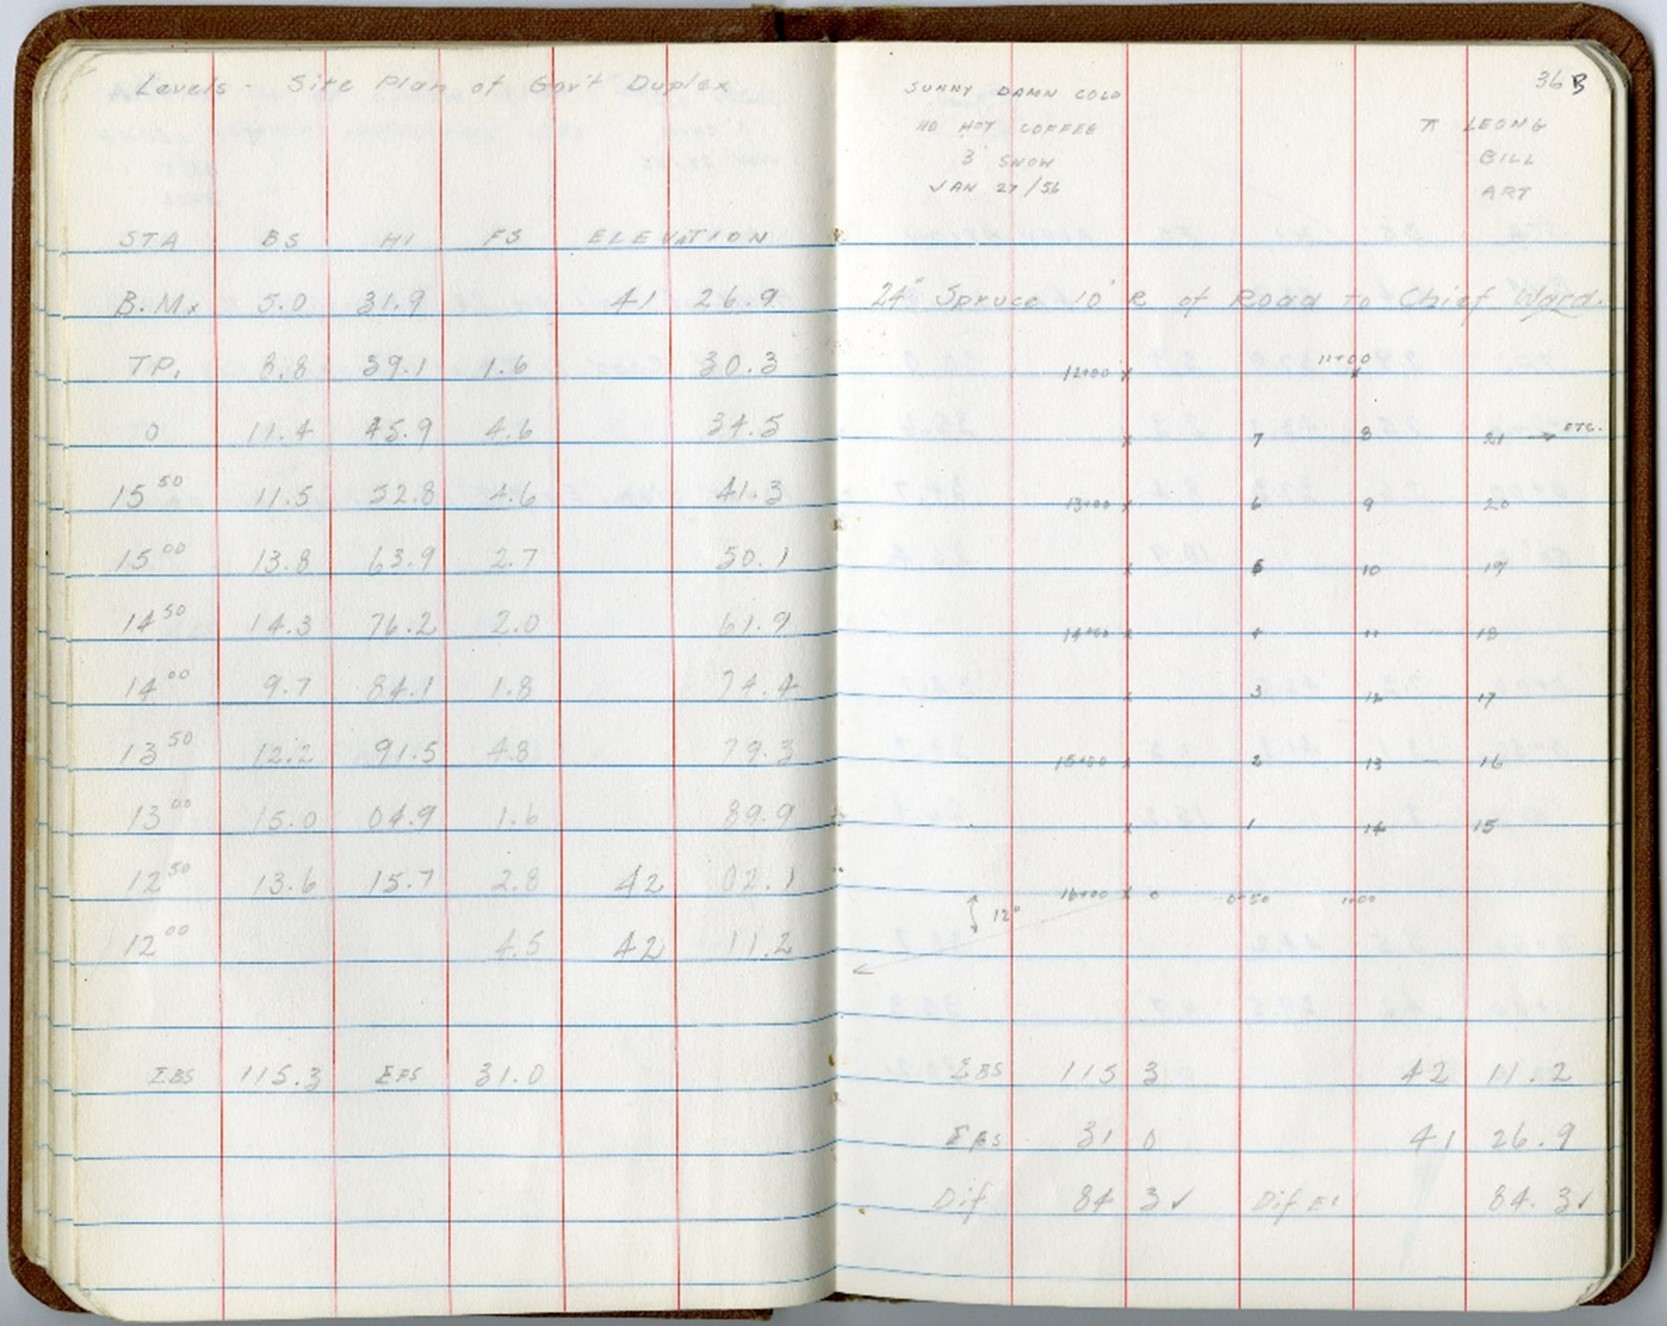 Levels - Site Plan of Gov't Duplex
STA BS HI FS ELEVATION
B.Mx 5.0 31.9 41 26.9
TP. 8.8 39.1 1.6 30.3
0 11.4 45.9 4.6 34.5
15⁵⁰ 11.5 52.8 4.6 41.3
15⁰⁰ 13.8 63.9 2.7 50.1
14⁵⁰ 14.3 76.2 2.0 61.9
14⁰⁰ 9.7 84.1 1.8 74.4
13⁵⁰ 12.2 91.5 4.8 79.3
13⁰⁰ 15.0 04.9 1.6 89.9
12⁵⁰ 13.6 15.7 2.8 42 02.1
12⁰⁰ 4.5 42 11.2
ΣBS 115.3 ΣFS 31.0
36 B
SUNNY DAMN COLD
NO HOT COFFEE
3' SNOW
JAN 27/56
π LEONG
BILL
ART
24" Spruce 10' R of Road to Chief Ward.
12+00 x 11+00 x
x 7 8 21 → ETC.
13+00 x 6 9 20
x 5 10 19
14+00 x 4 11 18
x 3 12 17
15+00 x 2 13 16
x 1 14 15
16+00 x 0 0+50 1+00
12°
ΣBS 115 3 42 11.2
ΣFS 31 0 41 26.9
Dif 84 3 ✓ Dif El 84.3 ✓